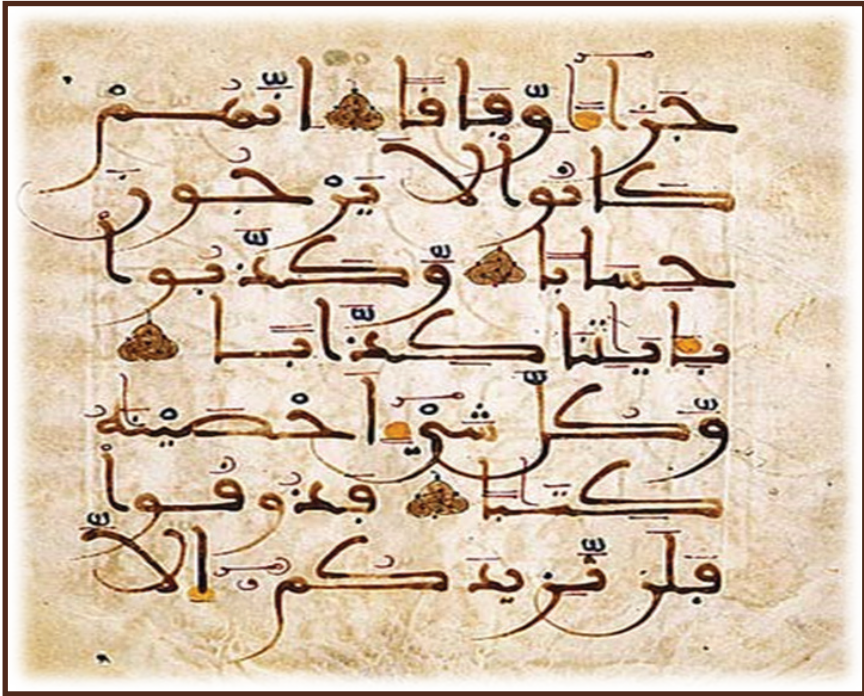 جَزَآءً وِّفَاقًا اِنَّهُمْ
كَانُواْ لَا يَرْجُونَ
حِسَابًا وَّكَذَّبُواْ
بِـَٔايَٰتِنَا كِذَّابًا
وَّكُلَّ شَيْءٍ اَحْصَيْنَٰهُ
كِتَٰبًا فَذُوقُواْ
فَلَن نَّزِيدَكُمُۥٓ إِلَّا